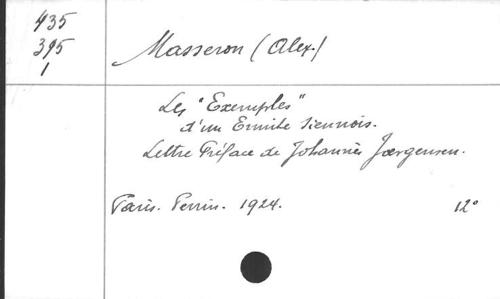 435
395
1
Masseron (Alex.)
Les "Exemples"
d'un Ermite Siennois.
Lettre Préface de Johannès Joergensen.
Paris. Perrin. 1924. 12°